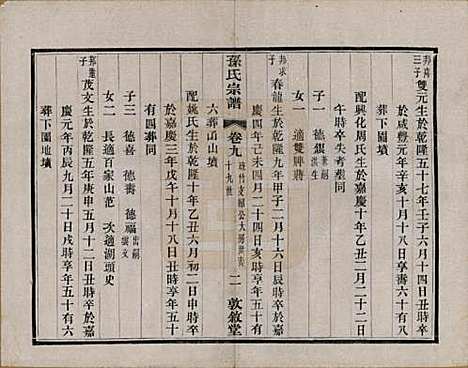 邦壽三子
雙元生於乾隆五十七年壬子六月十四日丑時卒
於咸豐元年辛亥十月十一日亥時享年六十有八
葬下園墳
配興化周氏生於嘉慶十年乙丑二月二十二日
午時卒失考葬同
子一 德銀兼祧洪生
女一 適雙牌蔣
邦求子
春龍生於乾隆九年甲子二月十六日丑時卒於嘉
慶四年己未四月二十四日亥時享年五十有
六葬面山墳
孫氏宗譜 卷九 十九世 二 敦敘堂
配姚氏生於乾隆十年乙丑六月初二日申時卒
於嘉慶三年戊午十月十八日丑時享年五十
有四葬同
子三 德喜 德壽 德雲出嗣
女二 長適百家山范 次適湖頭史
茂文生於乾隆五年庚申五月十二日丑時卒於嘉
慶元年丙辰九月二十日戌時享年五十有六
葬下園地墳